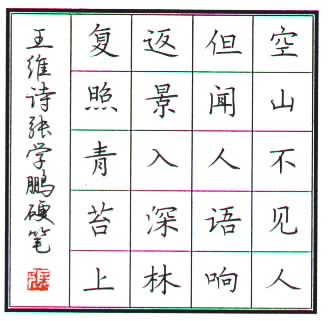 空山不见人
但闻人语响
返景入深林
复照青苔上
王维诗张学鹏硬笔